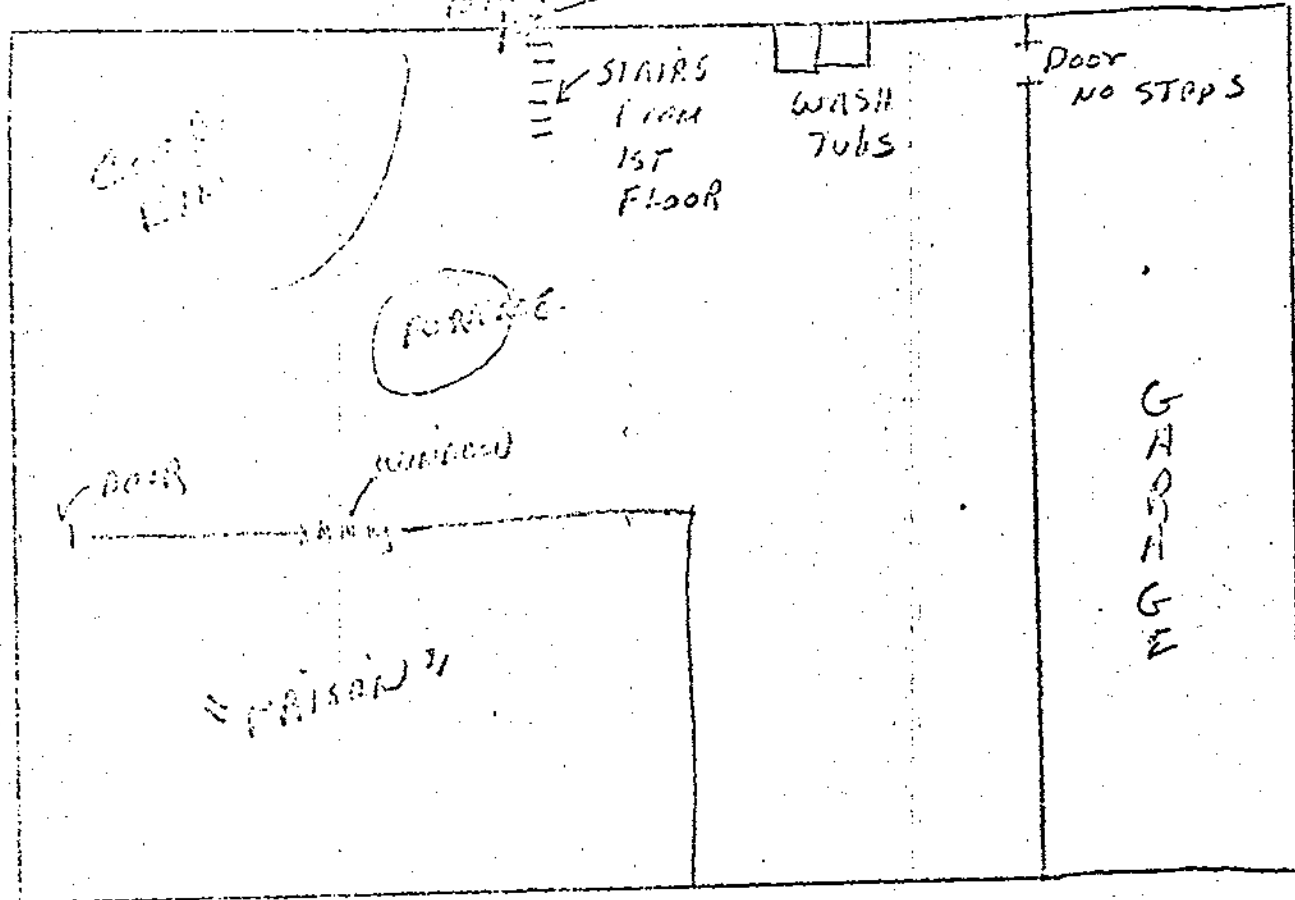 STAIRS
FROM
1ST
FLOOR
WASH
TUBS
DOOR
NO STEPS
FURNACE
DOOR
WINDOW
"PRISON"
GARAGE